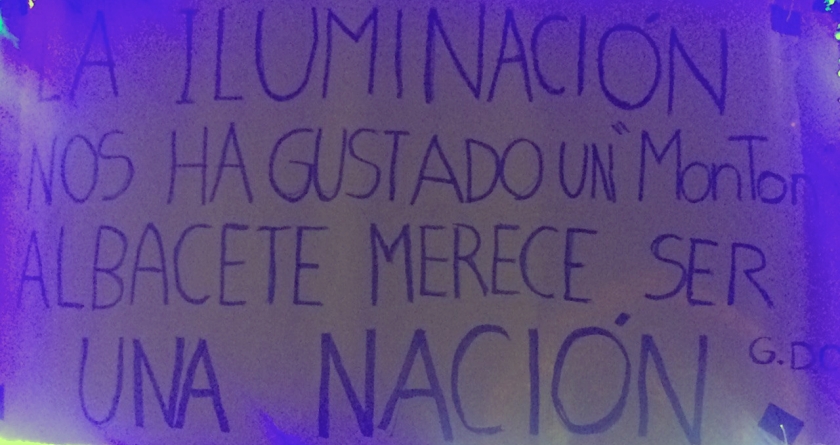 LA ILUMINACIÓN
NOS HA GUSTADO UN "MonTon
ALBACETE MERECE SER
UNA NACIÓN.